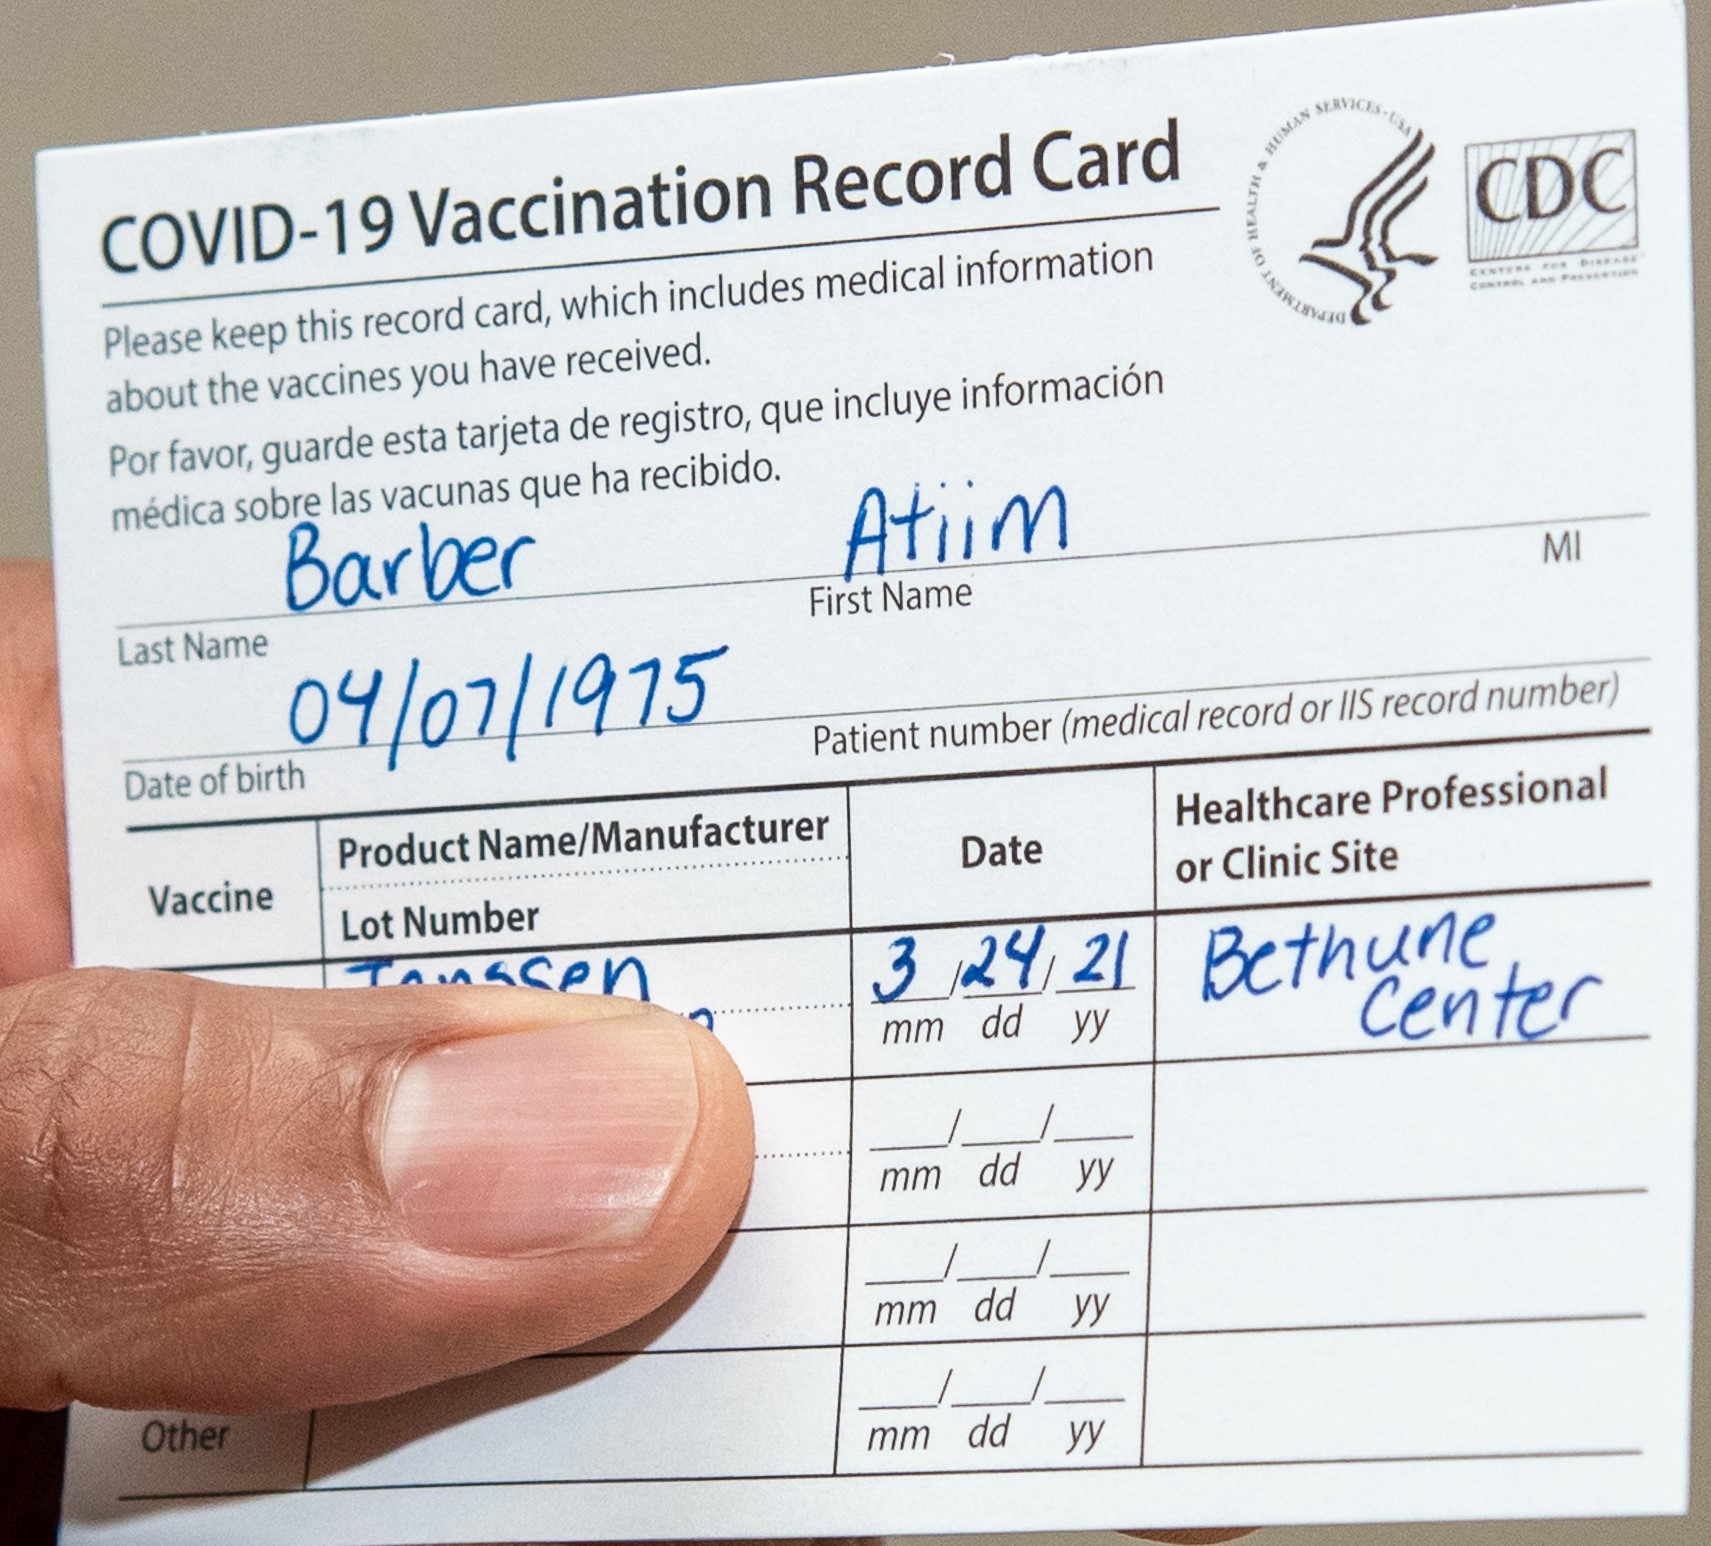 COVID-19 Vaccination Record Card
DEPARTMENT OF HEALTH & HUMAN SERVICES · USA
CDC
CENTERS FOR DISEASE
CONTROL AND PREVENTION
Please keep this record card, which includes medical information
about the vaccines you have received.
Por favor, guarde esta tarjeta de registro, que incluye información
médica sobre las vacunas que ha recibido.
Barber Atiim
Last Name First Name MI
04/07/1975
Date of birth Patient number (medical record or IIS record number)
Vaccine Product Name/Manufacturer Date Healthcare Professional
Lot Number or Clinic Site
Janssen 3/24/21 Bethune
Center
mm dd yy
__/__/__
mm dd yy
__/__/__
mm dd yy
Other __/__/__
mm dd yy